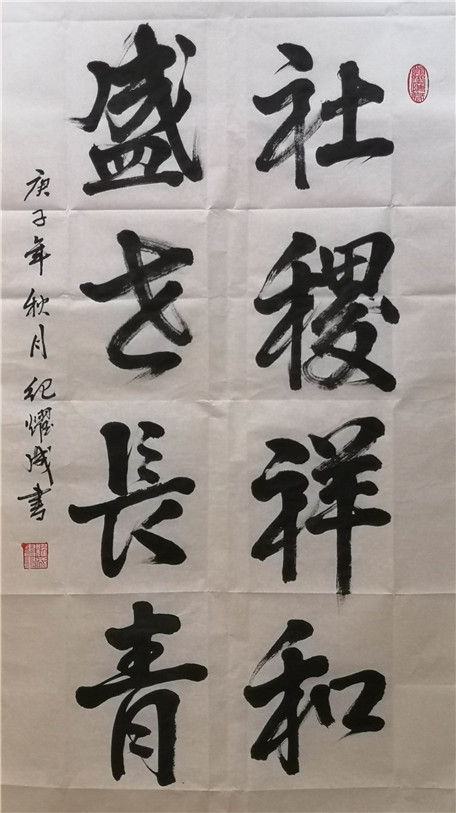 社稷祥和
盛世長青
庚子年秋月纪耀成書